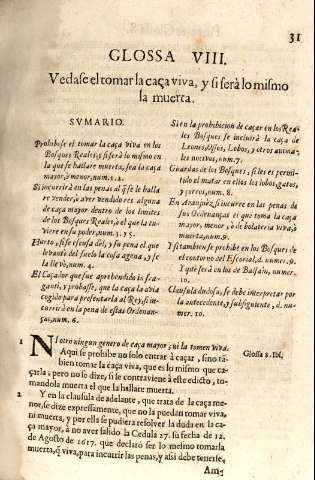 31
GLOSSA VIII.
Vedase el tomar la caça viva, y si serà lo mismo
la muerta.
SVMARIO.
Prohibese el tomar la caça viva en los
Bosques Reales, y si serà lo mismo en
la que se hallare muerta, sea la caça
mayor, ò menor, num. 1. 2.
Si incurrirà en las penas al q̃ se le halla
re vender, ò aver vendido res alguna
de caça mayor dentro de los limites
de los Bosques Reales, ò el que la tu-
viere en su poder, num. 3. y 5.
Hurto, si se escusa dél, y su pena el que
levantò del suelo la cosa agena, y se
la llevò, num. 4.
El Caçador que fue aprehendido in fra-
ganti, y probasse, que la caça la avia
cogido para presentarla al Rey, si in-
currirà en la pena de estas Ordenan-
ças, num. 6.
Si en la prohibicion de caçar en los Rea-
les Bosques se incluirà la caça de
Leones, Ossos, Lobos, y otros anima-
les nocivos, num. 7.
Guardas de los Bosques, si les es permi-
tido el matar en ellos los lobos, gatos,
y zorras, num. 8.
En Aranjuez, si incurre en las penas de
sus Ordenanças el que toma la caça
mayor, menor, ò de bolateria viva, ò
muerta, num. 9.
Y si tambien se prohibe en los Bosques de
el contorno del Escorial, d. numer. 9.
Y què serà en los de Balsain, numer.
10.
Clausula dudosa, se debe interpretar por
la antecedente, y subsiguiente, d. nu-
mer. 10.
1 NI otro ningun genero de caça mayor; ni la tomen viva.
Aqui se prohibe no solo entrar à caçar, sino tã-
bien tomar la caça viva, que es lo mismo que ca-
çarla; pero no se dize, si se contraviene à este edicto, to-
mandola muerta el que la hallare muerta.
Glossa 8. lit.
2 Y en la clausula de adelante, que trata de la caça me-
nor, se dize expressamente, que no la puedan tomar viva,
ni muerta, y por ella se pudiera resolver la duda en la ca-
ça mayor, à no aver salido la Cedula 27. su fecha de 12.
de Agosto de 1617. que declarò ser lo mismo tomarla
muerta, q̃ viva, para incurrir las penas; y assi debe tenerse,
Am-